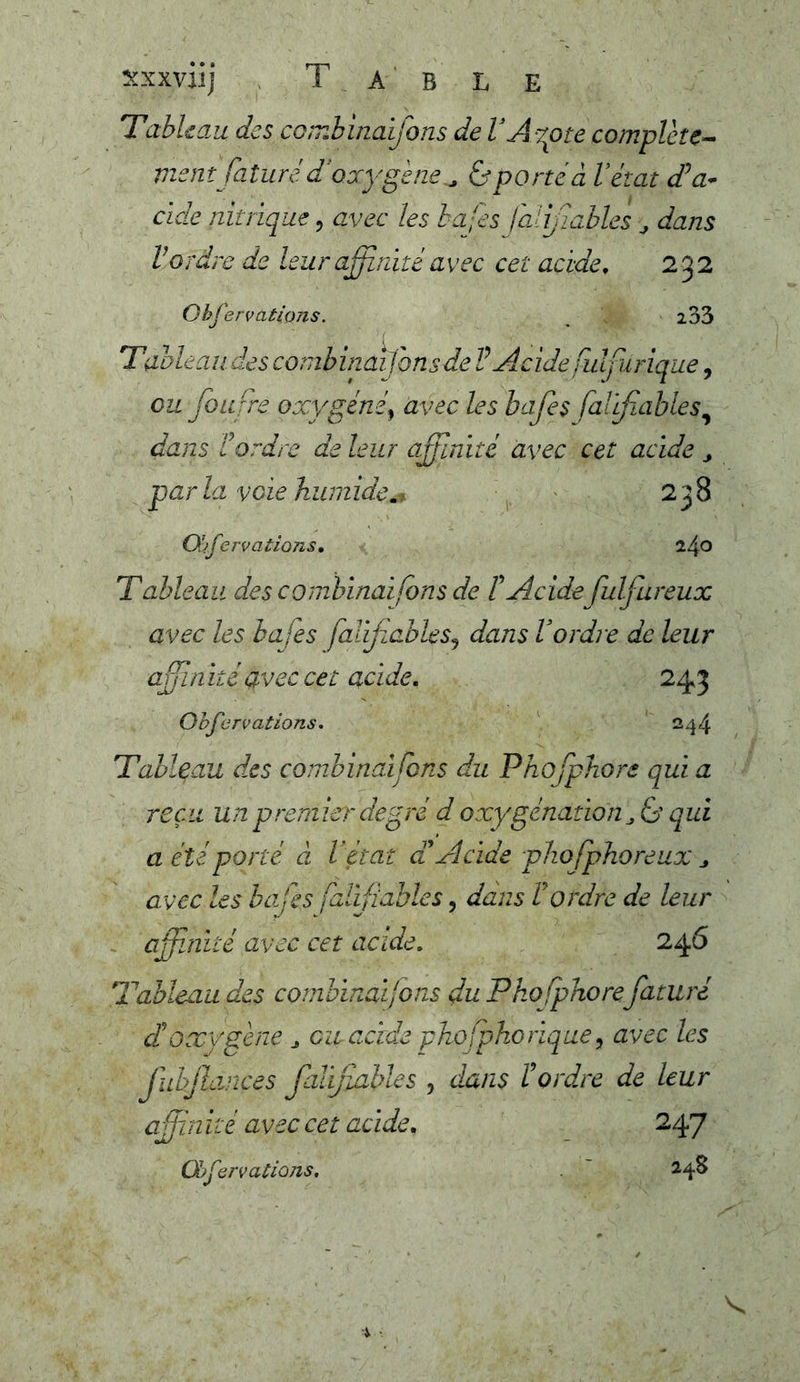 xxxviij TABLE
Tableau des combinaiſons de l'Azote complète-
ment ſaturé d'oxygène, & porté à l'état d'a-
cide nitrique, avec les baſes ſalifiables, dans
l'ordre de leur affinité avec cet acide. 232
Obſervations. 233
Tableau des combinaiſons de l'Acide ſulfurique,
ou ſoufre oxygéné, avec les baſes ſalifiables,
dans l'ordre de leur affinité avec cet acide,
par la voie humide. 238
Obſervations. 240
Tableau des combinaiſons de l'Acide ſulfureux
avec les baſes ſalifiables, dans l'ordre de leur
affinité avec cet acide. 243
Obſervations. 244
Tableau des combinaiſons du Phoſphore qui a
reçu un premier degré d'oxygénation, & qui
a été porté à l'état d'Acide phoſphoreux,
avec les baſes ſalifiables, dans l'ordre de leur
affinité avec cet acide. 246
Tableau des combinaiſons du Phoſphore ſaturé
d'oxygène, ou acide phoſphorique, avec les
ſubſtances ſalifiables, dans l'ordre de leur
affinité avec cet acide. 247
Obſervations. 248